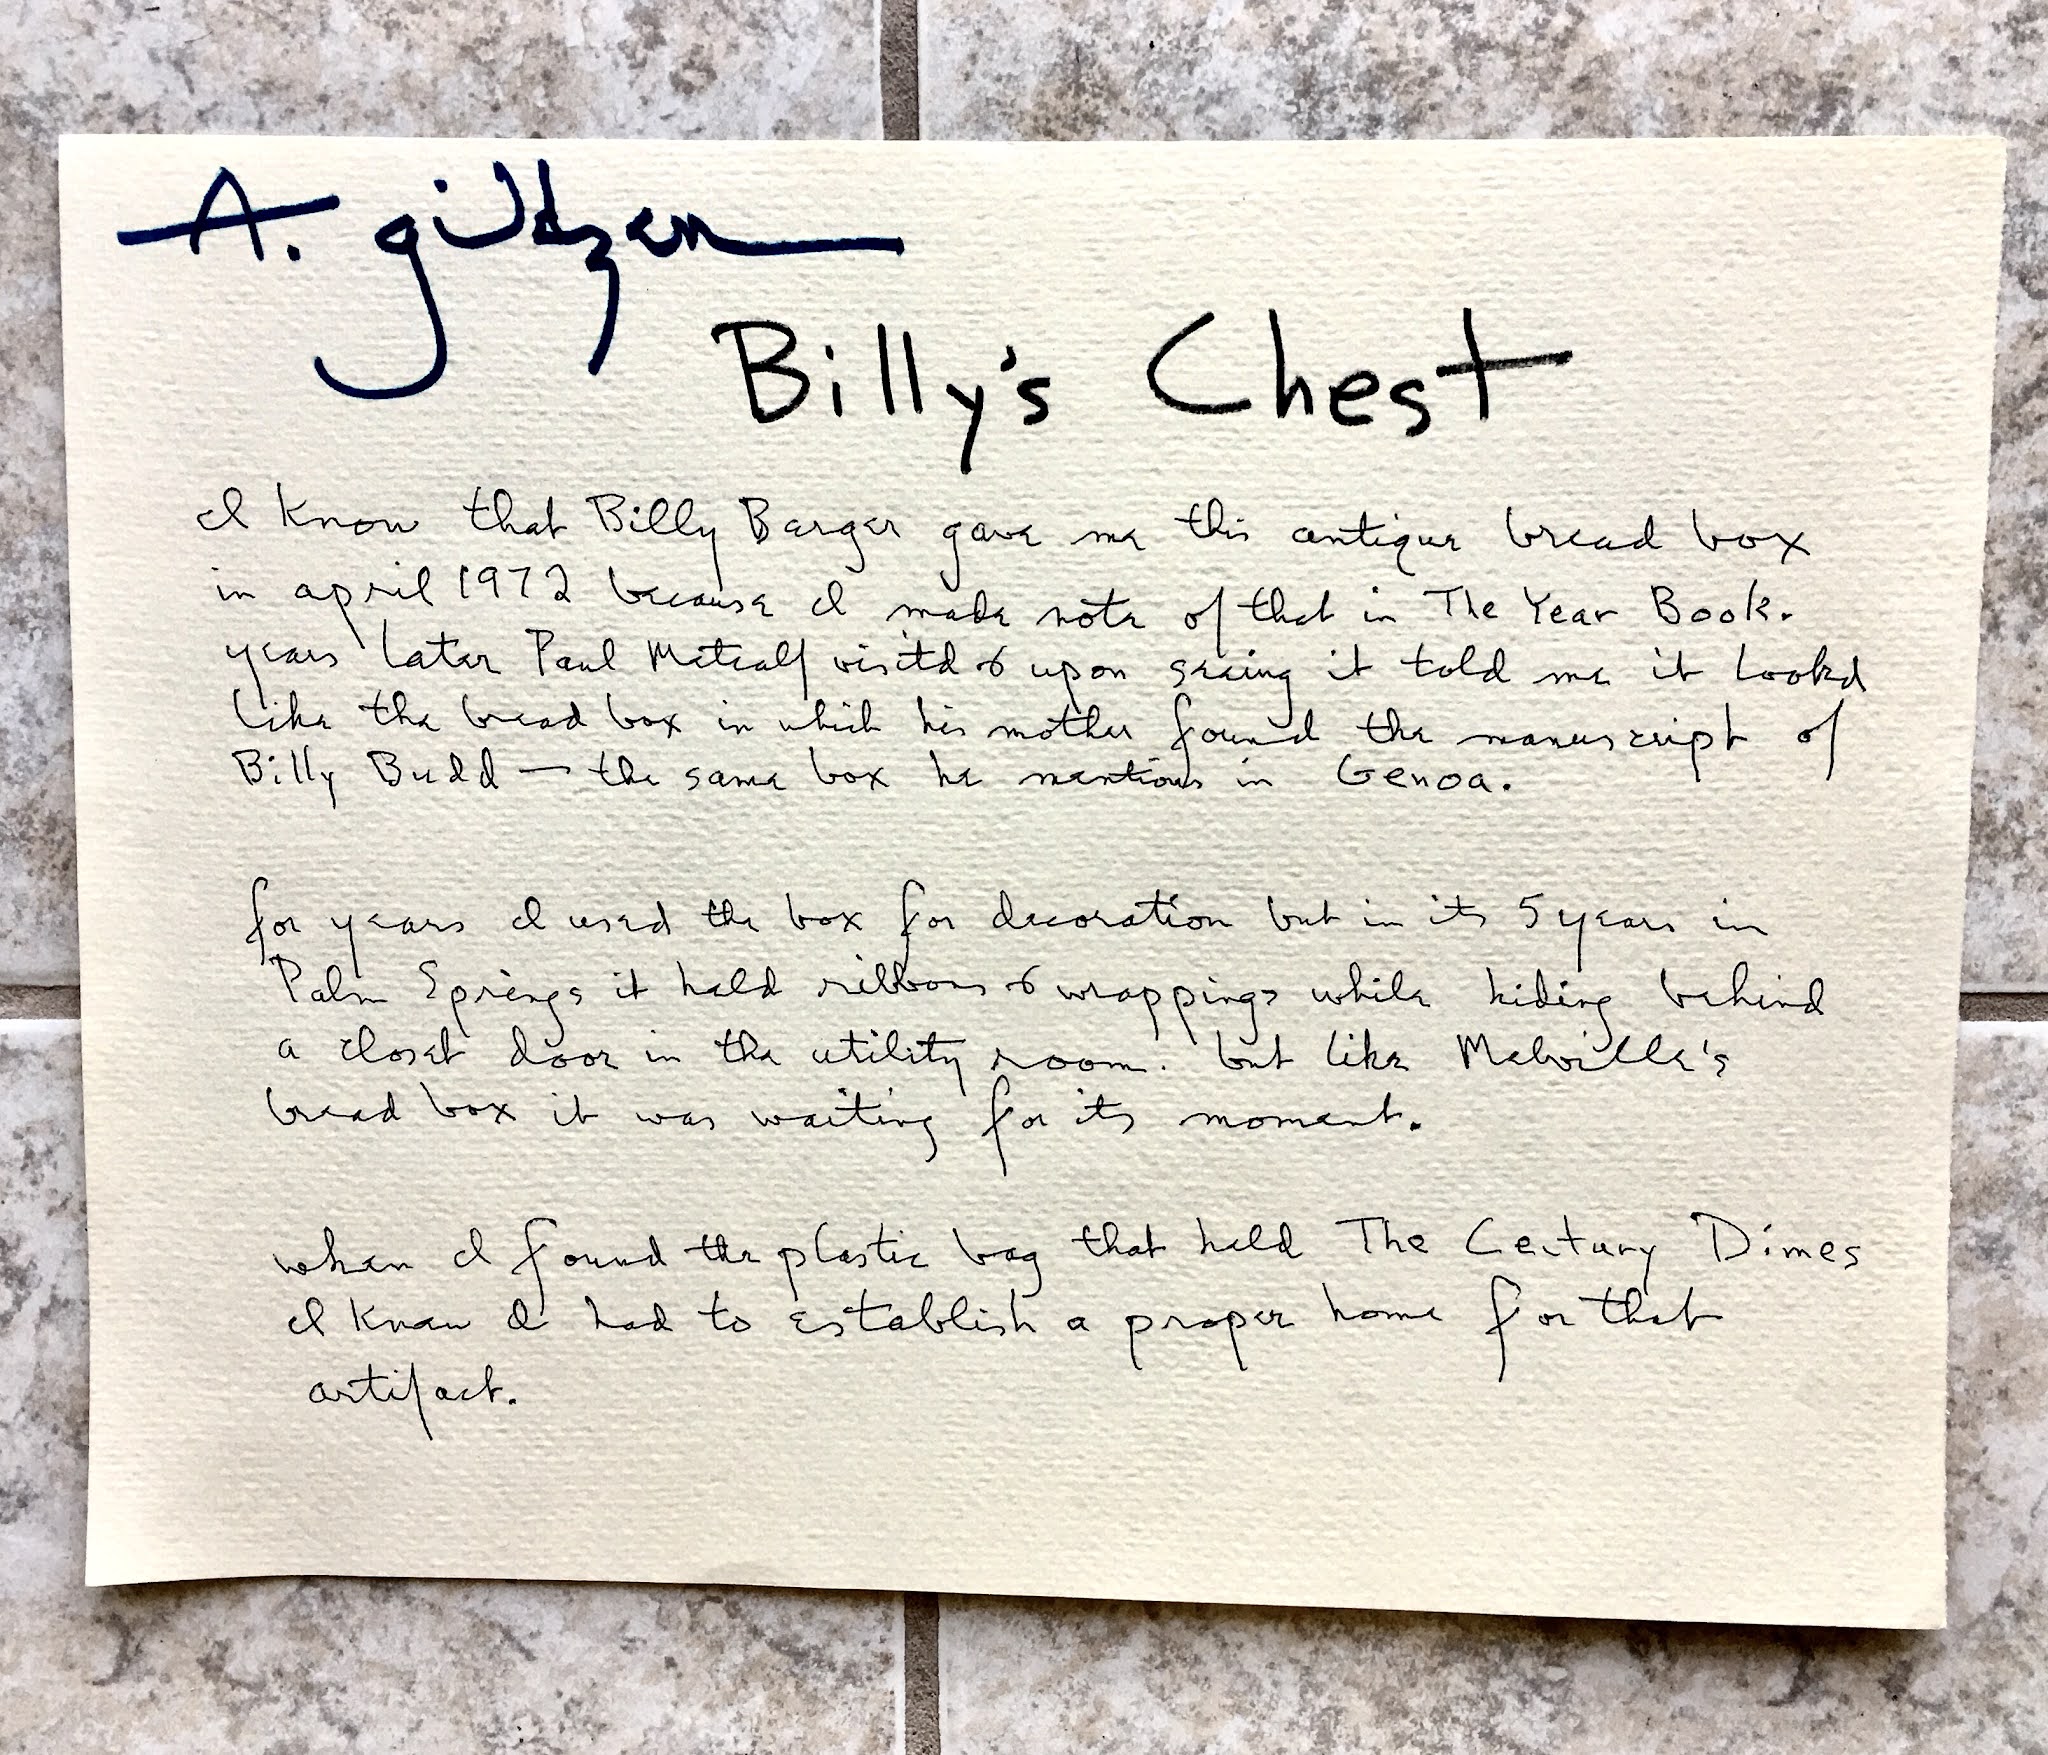 A. gildzen
Billy's Chest
I know that Billy Barger gave me this antique bread box
in april 1972 because I made note of that in The Year Book.
years later Paul Metcalf visitd & upon seeing it told me it lookd
like the bread box in which his mother found the manuscript of
Billy Budd — the same box he mentions in Genoa.
for years I used the box for decoration but in its 5 years in
Palm Springs it held ribbons & wrappings while hiding behind
a closet door in the utility room. but like Melville's
bread box it was waiting for its moment.
when I found the plastic bag that held The Century Dimes
I knew I had to establish a proper home for that
artifact.